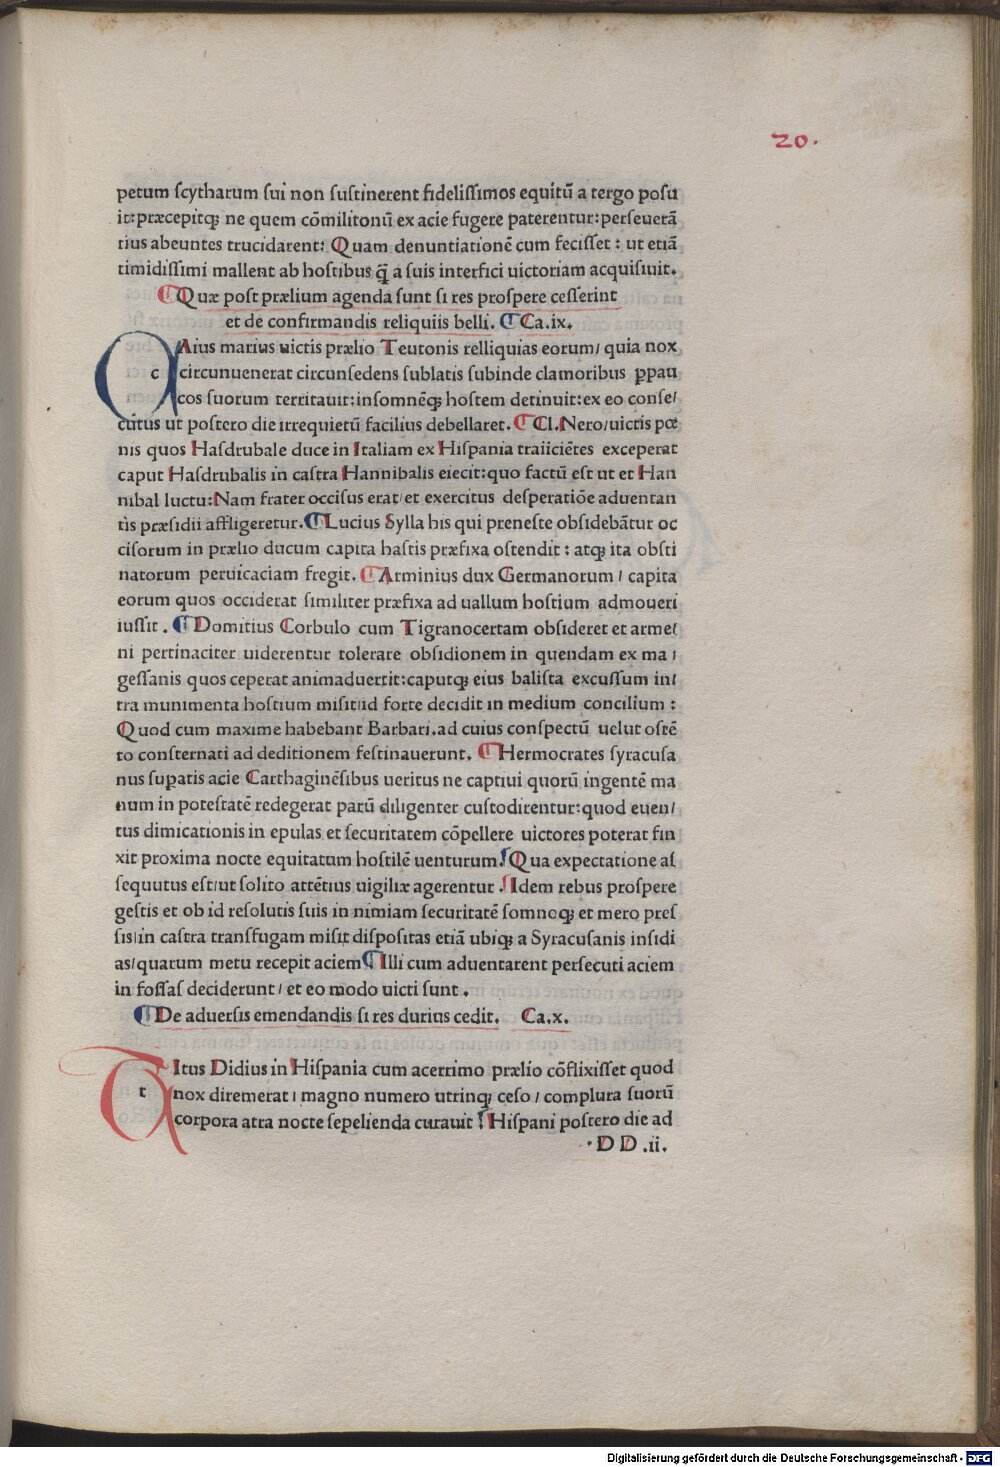 20.
petum ſcytharum ſui non ſuſtinerent fideliſſimos equitū a tergo poſu
it:præcepitqꝫ ne quem cōmilitonū ex acie fugere paterentur:perſeuerā
tius abeuntes trucidarent: Quam denuntiationē cum feciſſet : ut etiā
timidiſſimi mallent ab hoſtibus q̄ a ſuis interfici uictoriam acquiſiuit.
¶ Quæ poſt prælium agenda ſunt ſi res proſpere ceſſerint
et de confirmandis reliquiis belli. ¶ Ca.ix.
c Aius marius uictis prælio Teutonis relliquias eorum/ quia nox
circunuenerat circunſedens ſublatis ſubinde clamoribus ꝑpau
cos ſuorum territauit:inſomnēqꝫ hoſtem detinuit:ex eo conſe/
cutus ut poſtero die irrequietū facilius debellaret. ¶ Cl.Nero/uictis pœ
nis quos Haſdrubale duce in Italiam ex Hiſpania traiiciētes exceperat
caput Haſdrubalis in caſtra Hannibalis eiecit:quo factū eſt ut et Han
nibal luctu:Nam frater occiſus erat/et exercitus deſperatiōe aduentan
tis præſidii affligeretur. ¶ Lucius Sylla his qui preneſte obſidebātur oc
ciſorum in prælio ducum capita haſtis præfixa oſtendit : atqꝫ ita obſti
natorum peruicaciam fregit. ¶ Arminius dux Germanorum / capita
eorum quos occiderat ſimiliter præfixa ad uallum hoſtium admoueri
iuſſit . ¶ Domitius Corbulo cum Tigranocertam obſideret et arme/
ni pertinaciter uiderentur tolerare obſidionem in quendam ex ma /
geſſanis quos ceperat animaduertit:caputqꝫ eius baliſta excuſſum in/
tra munimenta hoſtium miſit/id forte decidit in medium concilium :
Quod cum maxime habebant Barbari.ad cuius conſpectū uelut oſtē
to conſternati ad deditionem feſtinauerunt. ¶ Hermocrates ſyracuſa
nus ſupatis acie Carthaginēſibus ueritus ne captiui quorū ingentē ma
num in poteſtatē redegerat parū diligenter cuſtodirentur:quod euen/
tus dimicationis in epulas et ſecuritatem cōpellere uictores poterat fin
xit proxima nocte equitatum hoſtilē uenturum. Qua expectatione aſ
ſequutus eſt/ut ſolito attētius uigiliæ agerentur . Idem rebus proſpere
geſtis et ob id reſolutis ſuis in nimiam ſecuritatē ſomnoqꝫ et mero preſ
ſis/in caſtra transfugam miſit diſpoſitas etiā ubiqꝫ a Syracuſanis inſidi
as/quarum metu recepit aciem ¶ Illi cum aduentarent perſecuti aciem
in foſſas deciderunt / et eo modo uicti ſunt .
¶ De aduerſis emendandis ſi res durius cedit. Ca.x.
t Itus Didius in Hiſpania cum acerrimo prælio cōflixiſſet quod
nox diremerat / magno numero utrinqꝫ ceſo / complura ſuorū
corpora atra nocte ſepelienda curauit Hiſpani poſtero die ad
.D D .ii.
Digitalisierung gefördert durch die Deutsche Forschungsgemeinschaft - DFG